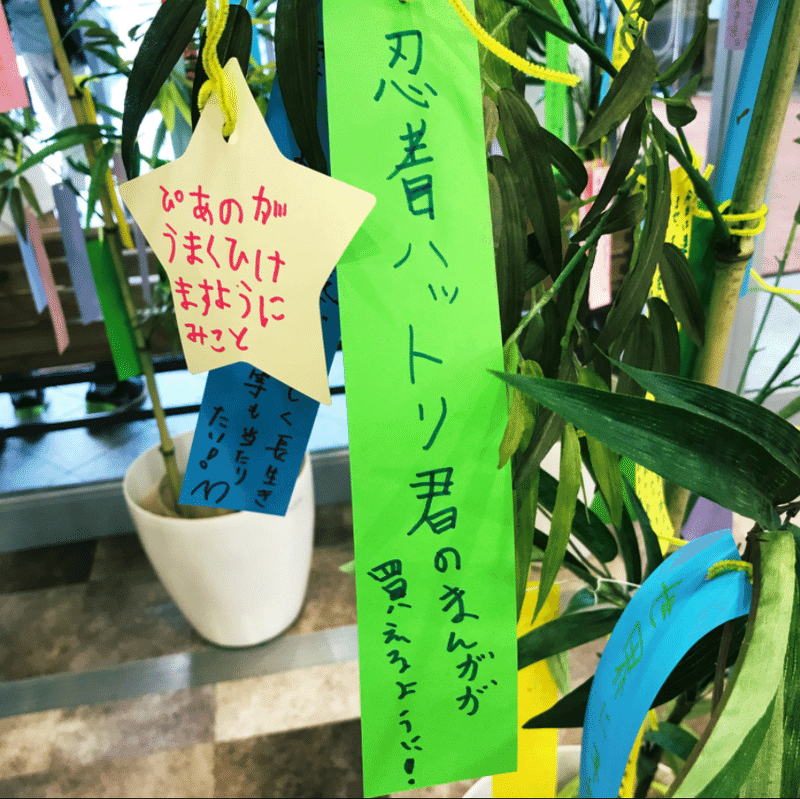 ぴあのが
うまくひけ
ますように
みこと
忍者ハットリ君のまんがが
買えるように!
しく長生き
等も当たり
たい!